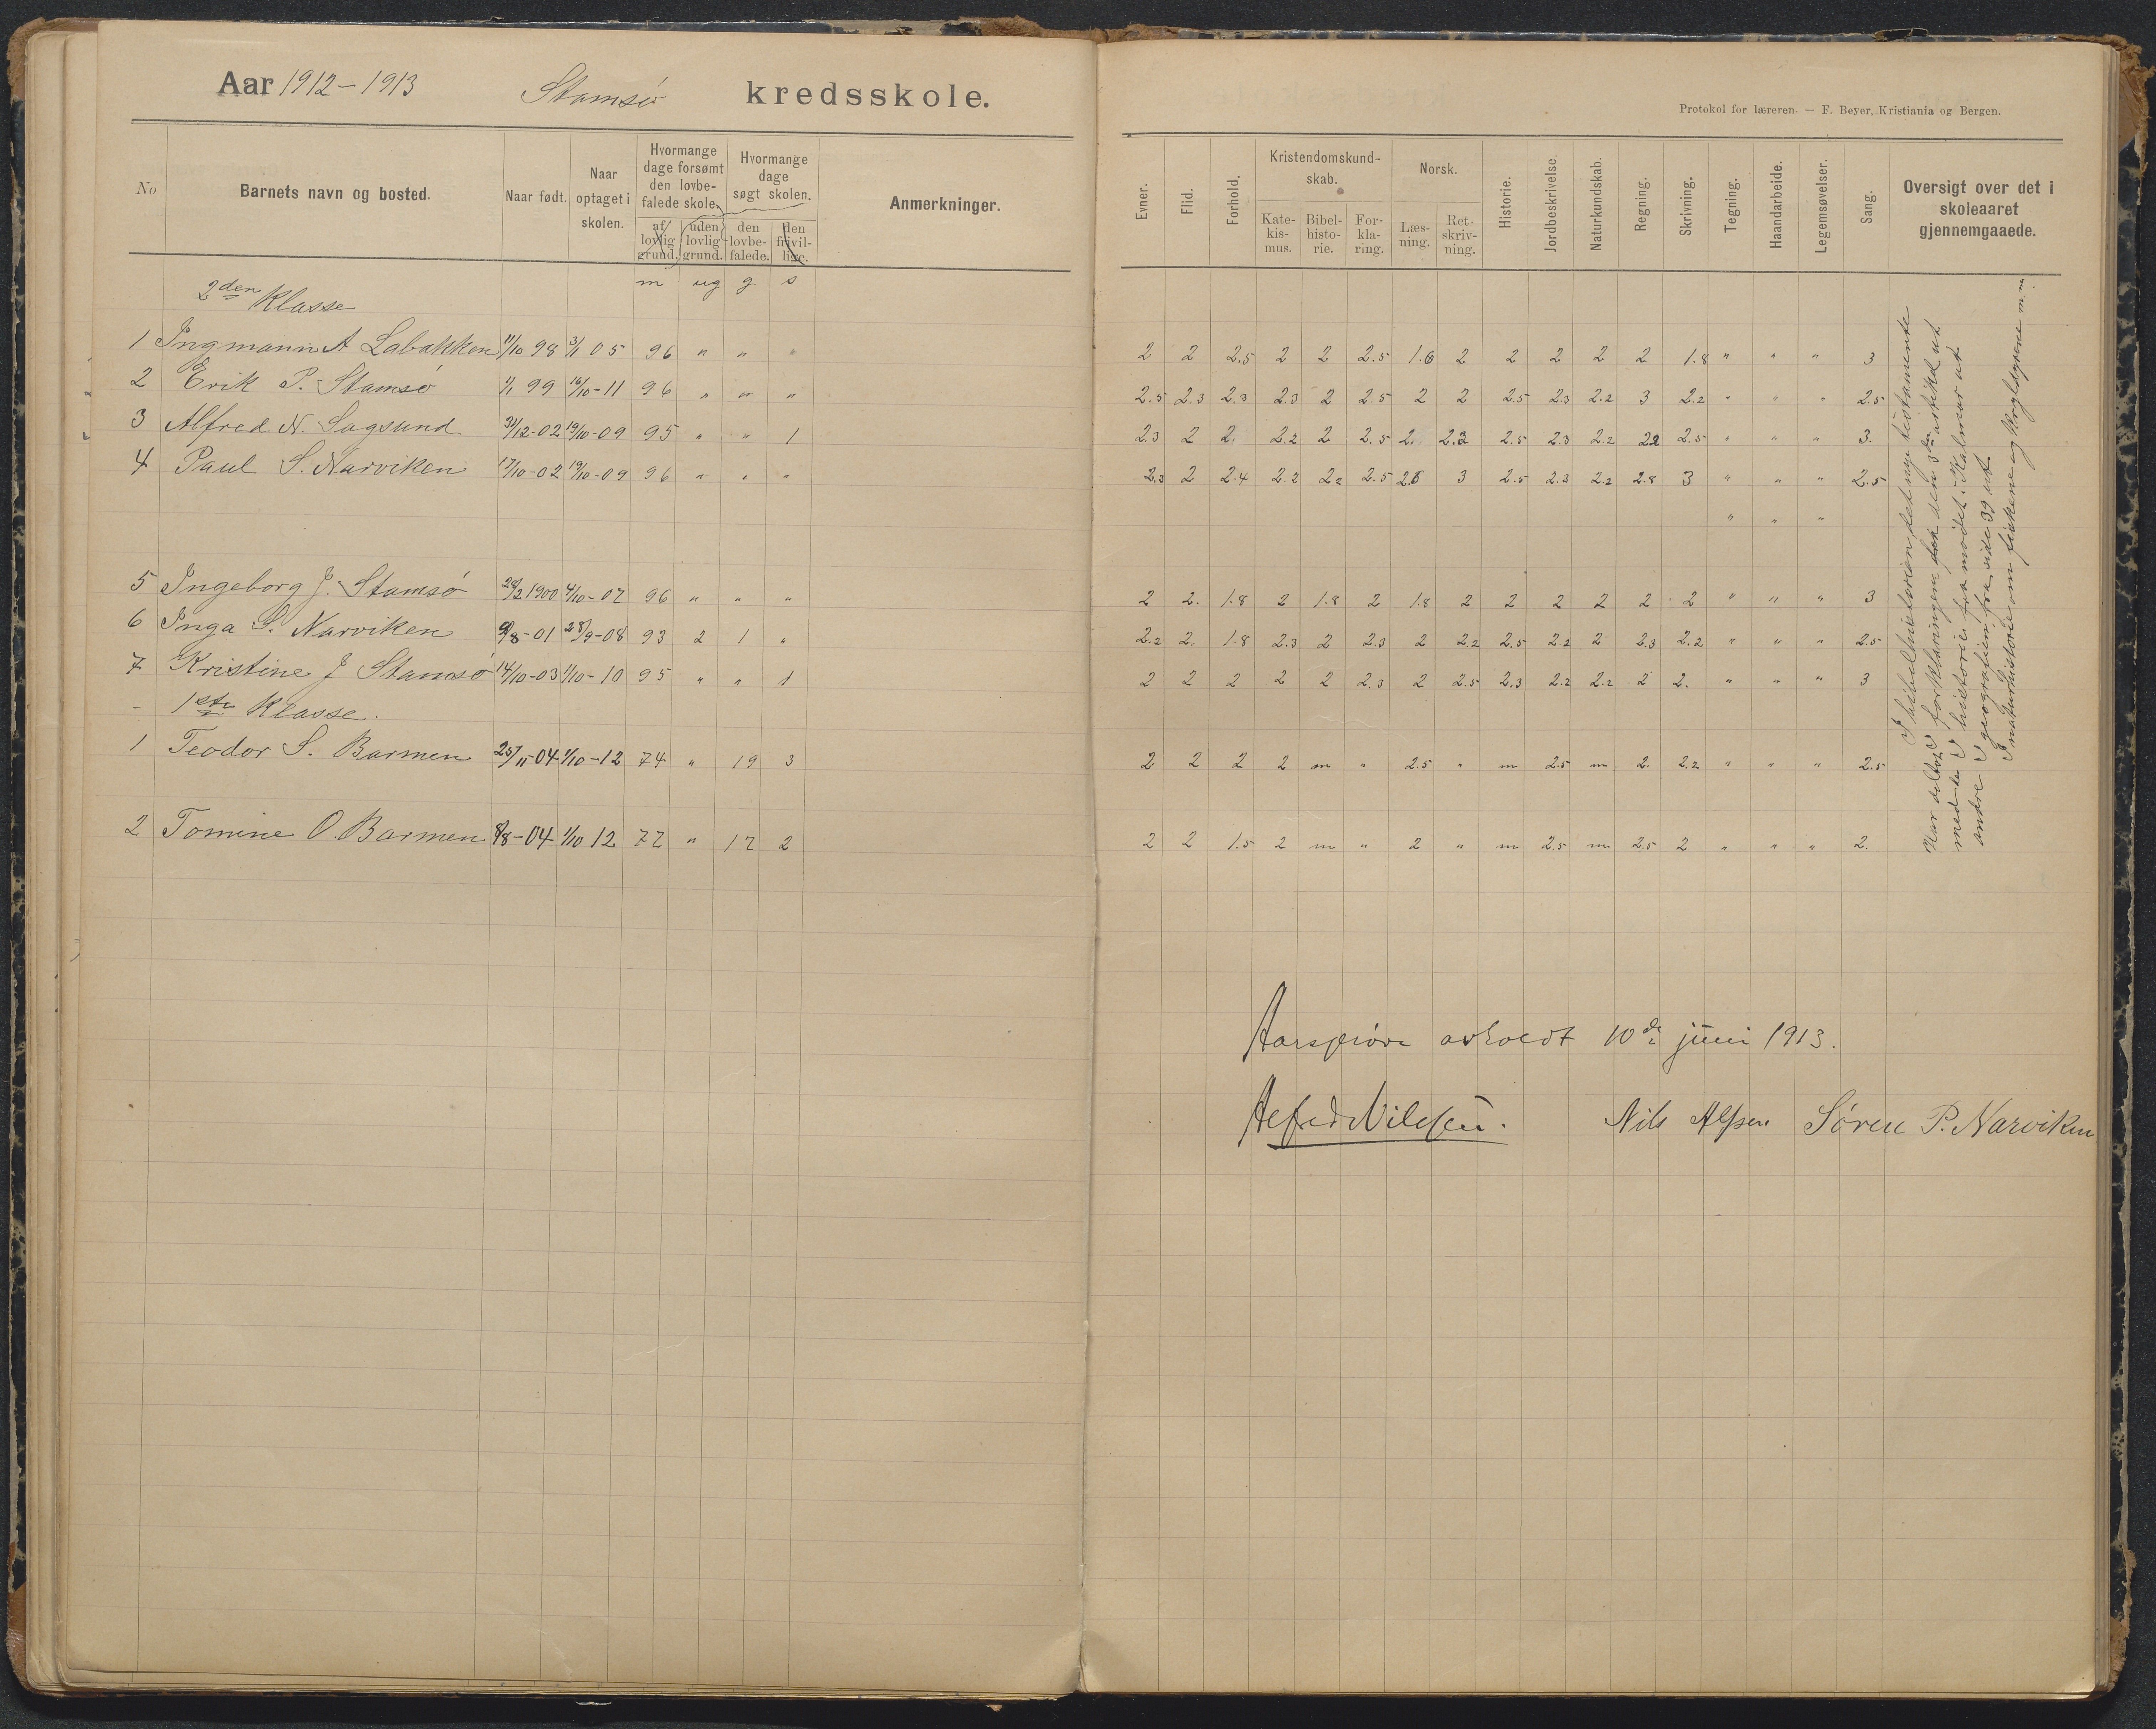 Aar 1912-1913 Stamsø kredsskole.
No
Barnets navn og bosted.
Naar født.
Naar optaget i skolen.
Hvormange dage forsømt den lovbefalede skole.
af lovlig grund.
uden lovlig grund.
Hvormange dage søgt skolen.
den lovbefalede.
den frivillige.
Anmerkninger.
m ug g s
2den Klasse
1 Ingmann A Labakken 11/10 98 3/1 05 96 " " "
2 Erik P. Stamsø 1/1 99 16/10-11 96 " " "
3 Alfred N. Sagsund 31/12-02 19/10-09 95 " " 1
4 Paul S. Narviken 17/10-02 19/10-09 96 " " "
5 Ingeborg J. Stamsø 28/2 1900 4/10-07 96 " " "
6 Inga S. Narviken 9/8-01 28/9-08 93 2 1 "
7 Kristine J Stamsø 14/10-03 1/10-10 95 " " 1
- 1ste Klasse.
1 Teodor S. Barmen 25/11-04 1/10-12 74 " 19 3
2 Tomine O. Barmen 8/8-04 1/10 12 77 " 17 2
Protokol for læreren. — F. Beyer, Kristiania og Bergen.
Evner.
Flid.
Forhold.
Kristendomskundskab.
Katekismus.
Bibelhistorie.
Forklaring.
Norsk.
Læsning.
Retskrivning.
Historie.
Jordbeskrivelse.
Naturkundskab.
Regning.
Skrivning.
Tegning.
Haandarbeide.
Legemsøvelser.
Sang.
Oversigt over det i skoleaaret gjennemgaaede.
2 2 2.5 2 2 2.5 1.8 2 2 2 2 2 1.8 " " " 3
2.5 2.3 2.3 2.3 2 2.5 2 2 2.5 2.3 2.2 3 2.2 " " " 2.5
2.3 2 2. 2.2 2 2.5 2. 2.3 2.5 2.3 2.2 22 2.5 " " " 3.
2.3 2 2.4 2.2 22 2.5 2.5 3 2.5 2.3 2.2 2.8 3 " " " 2.5
" " "
2 2. 1.8 2 1.8 2 1.8 2 2 2 2 2 2 " " " 3
2.2 2. 1.8 2.3 2 2.3 2 2.2 2.5 2.2 2 2.3 2.2 " " " 2.5
2 2 2 2 2 2.3 2 2.5 2.3 2.2 2.2 2 2. " " " 3
2 2 2 2 m " 2.5 " m 2.5 m 2. 2.2 " " " 2.5
2 2 1.5 2 m " 2 " m 2.5 m 2.5 2 " " " 2.
I bibelhistorien det nye testamente
Har deltat I forklaringen fra den 3die artikel ut
med de I historie fra mødet i Kalmar ut
andre I geografien fra side 39 ut.
I naturhistorie om fiskene og m.m.
Aarsprøve avholdt 10de juni 1913.
Alfred Nilssen. Nils Alfsen Søren P. Narviken